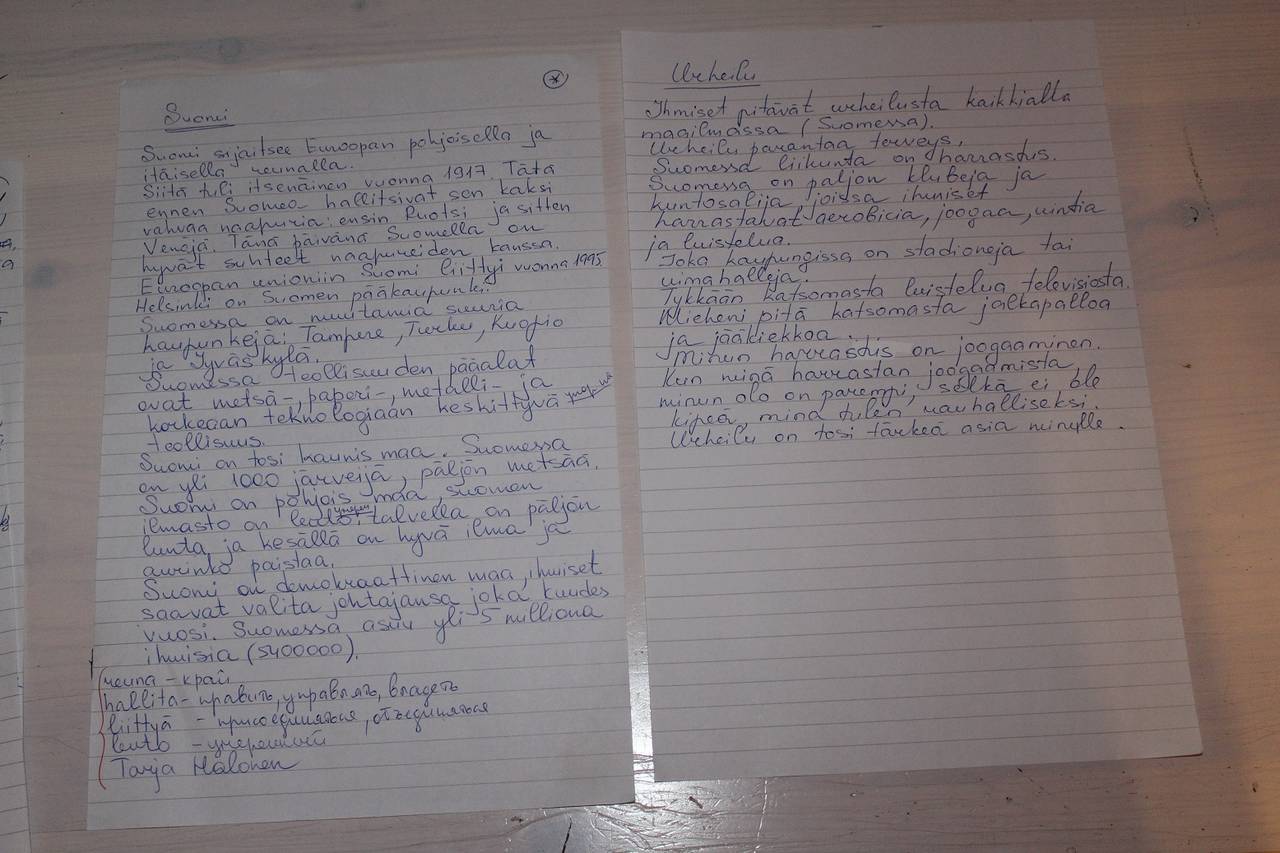 Suomi
Suomi sijaitsee Euroopan pohjoisella ja
itäisellä reunalla.
Siitä tuli itsenäinen vuonna 1917. Tätä
ennen Suomea hallitsivat sen kaksi
vahvaa naapuria: ensin Ruotsi ja sitten
Venäjä. Tänä päivänä Suomella on
hyvät suhteet naapureiden kanssa.
Euroopan unioniin Suomi liittyi vuonna 1995
Helsinki on Suomen pääkaupunki.
Suomessa on muutamia suuria
kaupunkeja: Tampere, Turku, Kuopio
ja Jyväskylä.
Suomessa teollisuuden pääalat
ovat metsä-, paperi-, metalli- ja
korkeaan teknologiaan keskittyvä
teollisuus.
Suomi on tosi kaunis maa. Suomessa
on yli 1000 järveijä, päljön metsää.
Suomi on pohjois maa, suomen
ilmasto on leuto: talvella on päljön
lunta, ja kesällä on hyvä ilma ja
aurinko paistaa.
Suomi on demokraattinen maa, ihmiset
saavat valita johtajansa joka kuudes
vuosi. Suomessa asuu yli 5 milliona
ihmisia (5400000).
reuna - край
hallita - править, управлять, владеть
liittyä - присоединяться, объединяться
leuto - умеренный
Tarja Halonen
Urheilu
Ihmiset pitävät urheilusta kaikkialla
maailmassa (Suomessa).
Urheilu parantaa terveys.
Suomessa liikunta on harrastus.
Suomessa on paljon klubeja ja
kuntosalija joissa ihmiset
harrastavat aerobicia, joogaa, uintia
ja luistelua.
Joka kaupungissa on stadioneja tai
uimahalleja.
Tykkään katsomasta luistelua televisiosta.
Mieheni pitä katsomasta jalkapalloa
ja jääkiekkoa.
Minun harrastus on joogaaminen.
Kun minä harrastan joogaamista,
minun olo on parempi, selkä ei ole
kipeä, minä tulen rauhalliseksi.
Urheilu on tosi tärkeä asia minulle.